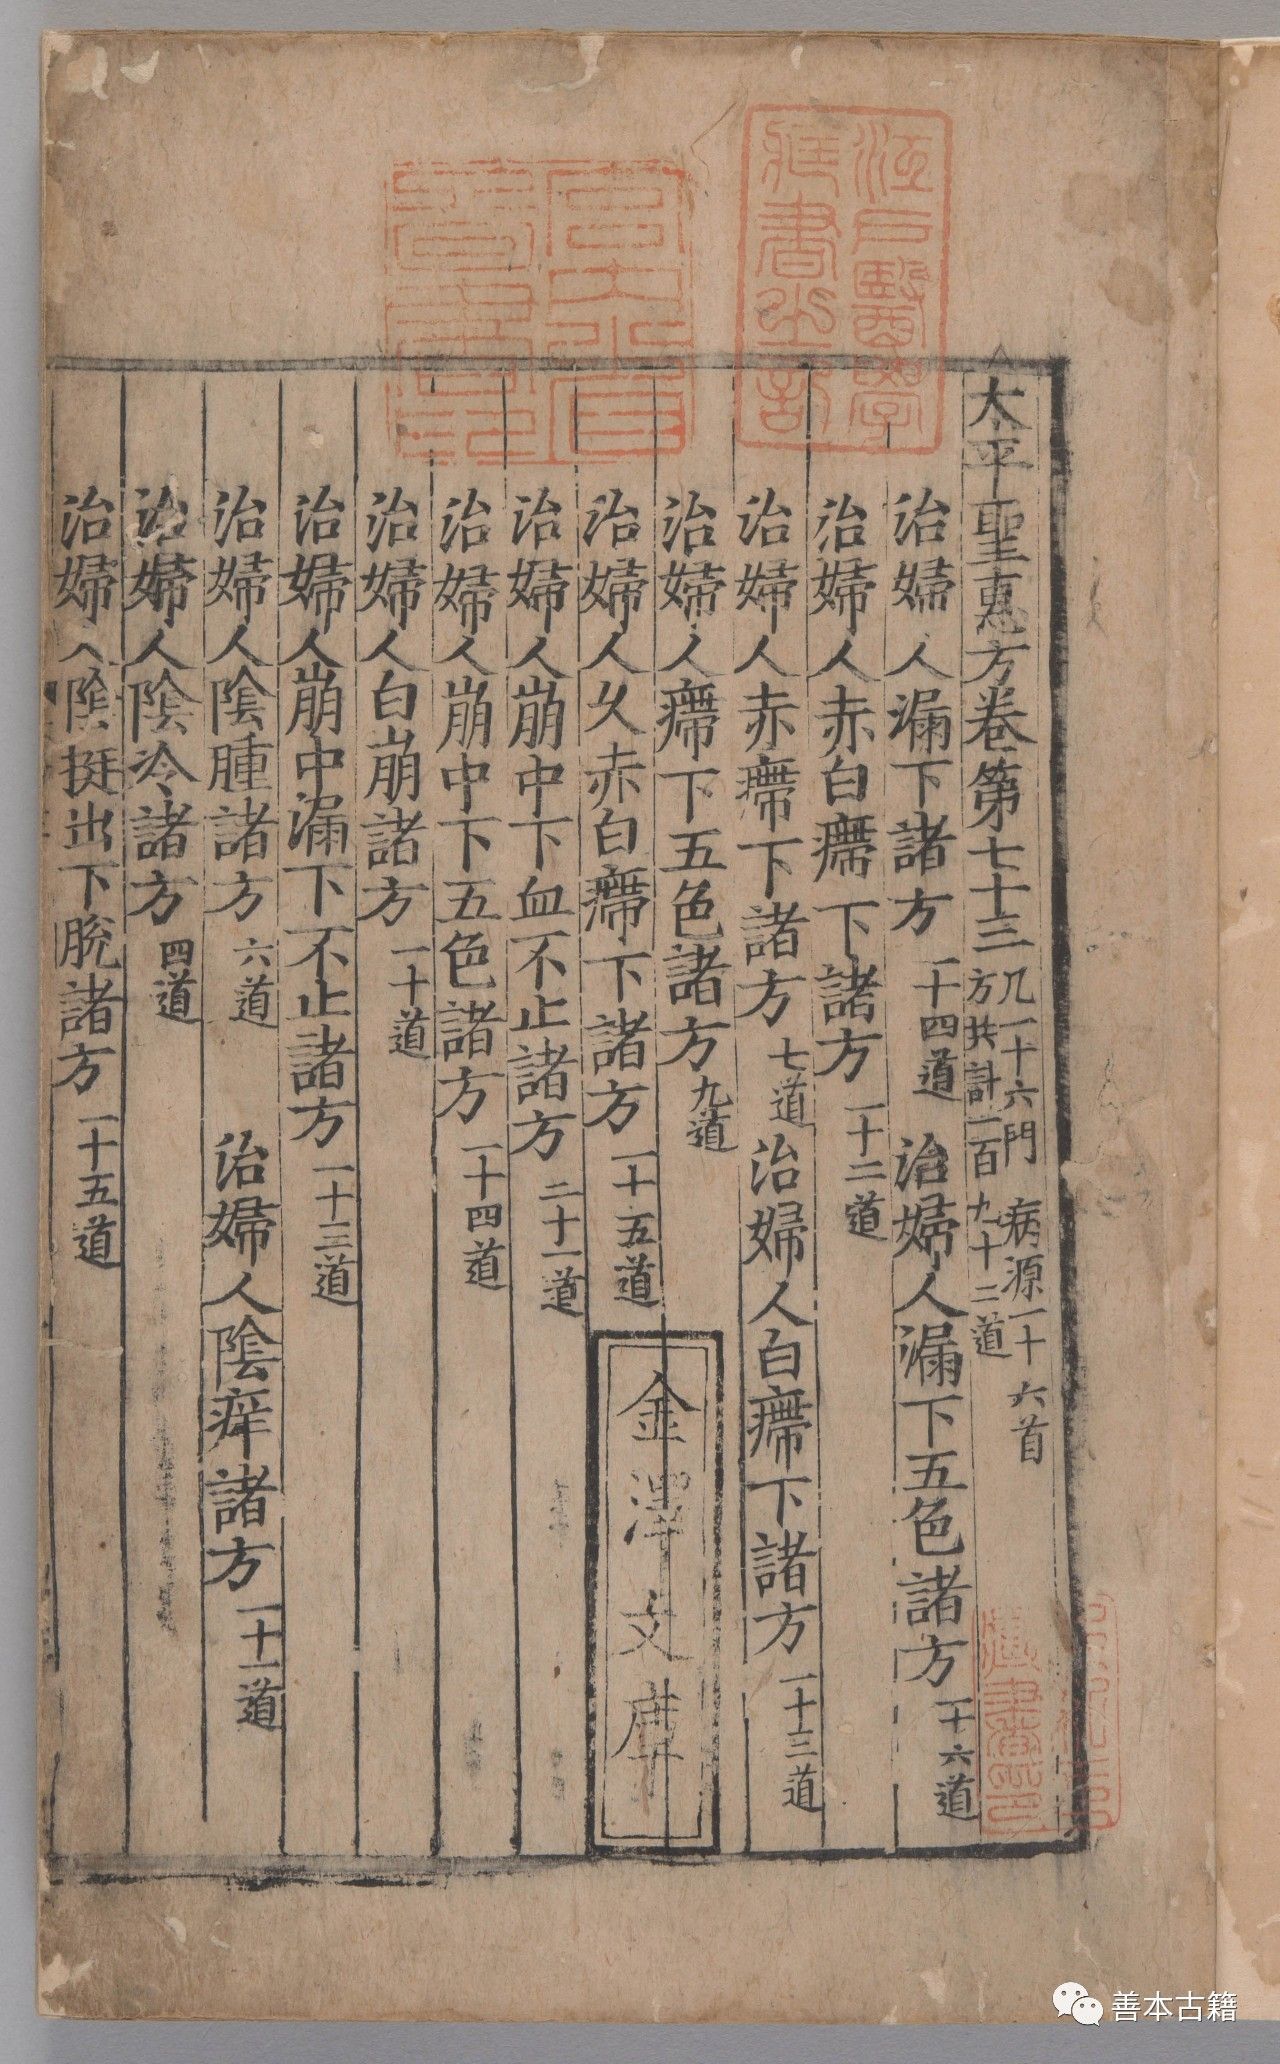 太平聖惠方卷第七十三 凡一十六門 病源一十六首 方共計一百九十二道
治婦人漏下諸方 一十四道 治婦人漏下五色諸方 一十六道
治婦人赤白癘下諸方 一十二道
治婦人赤癘下諸方 七道 治婦人白癘下諸方 一十三道
治婦人癘下五色諸方 九道
治婦人久赤白癘下諸方 一十五道
治婦人崩中下血不止諸方 二十一道
治婦人崩中下五色諸方 一十四道
治婦人白崩諸方 一十道
治婦人崩中漏下不止諸方 一十三道
治婦人陰腫諸方 六道 治婦人陰痒諸方 一十一道
治婦人陰冷諸方 四道
治婦人陰挺出下脫諸方 一十五道
金澤文庫
江戶醫學藏書之記
宮內省圖書記
善本古籍